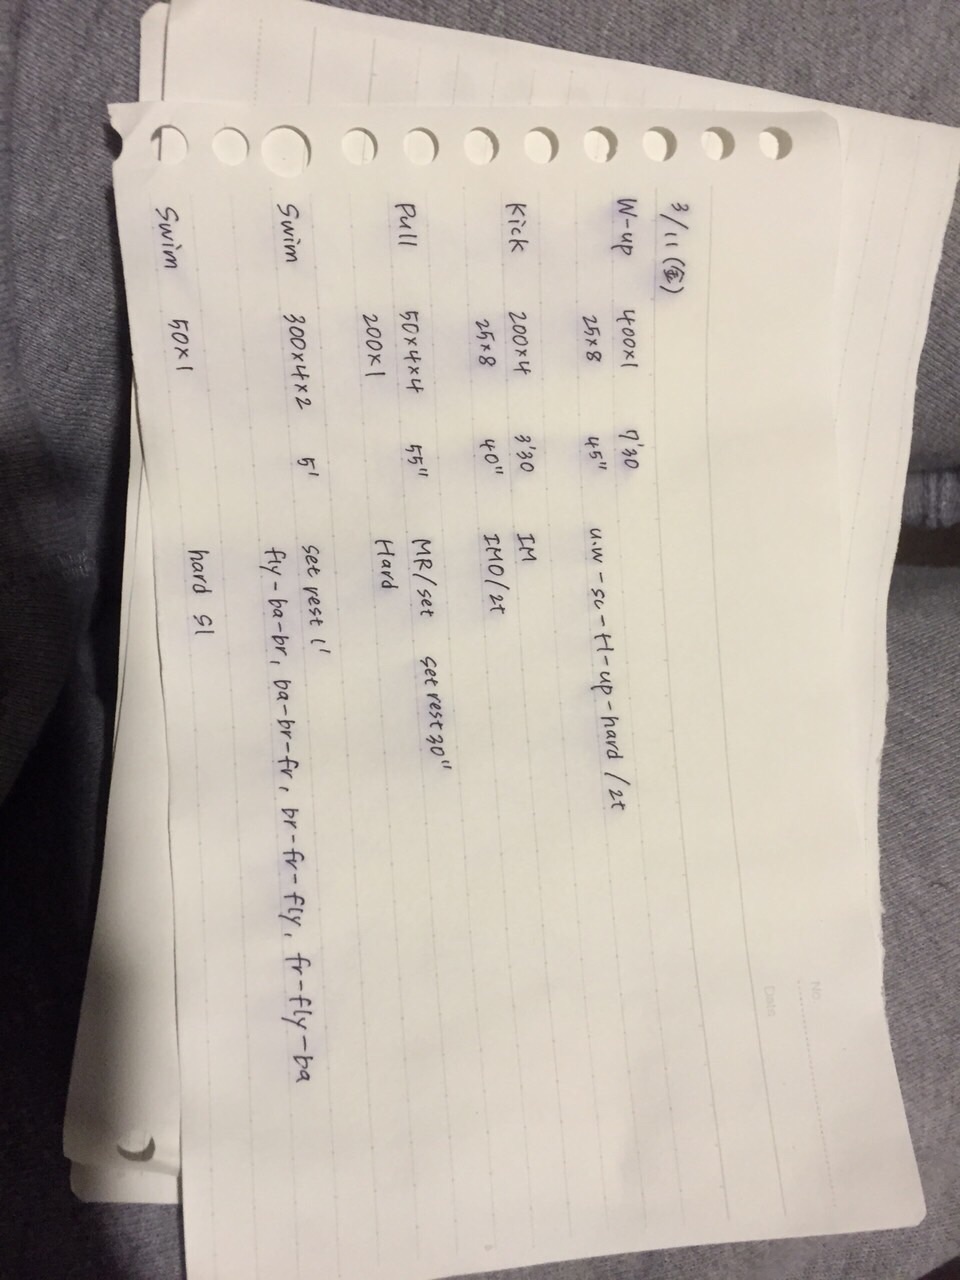 No.
Date
3/11(金)
W-up 400×1 7'30
25×8 45" u.w-sc-H-up-hard/2t
Kick 200×4 3'30 IM
25×8 40" IMO/2t
Pull 50×4×4 55" MR/set set rest 30"
200×1 Hard
Swim 300×4×2 5' set rest 1'
fly-ba-br, ba-br-fr, br-fr-fly, fr-fly-ba
Swim 50×1 hard S1